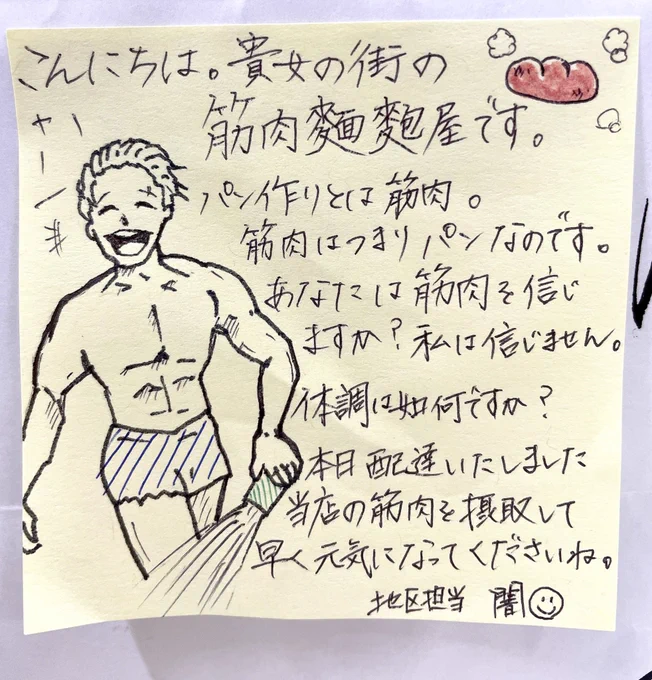 こんにちは。貴女の街の
筋肉麵麭屋です。
パン作りとは筋肉。
筋肉はつまりパンなのです。
あなたは筋肉を信じ
ますか?私は信じません。
体調は如何ですか?
本日配達いたしました
当店の筋肉を摂取して
早く元気になってくださいね。
地区担当 闇